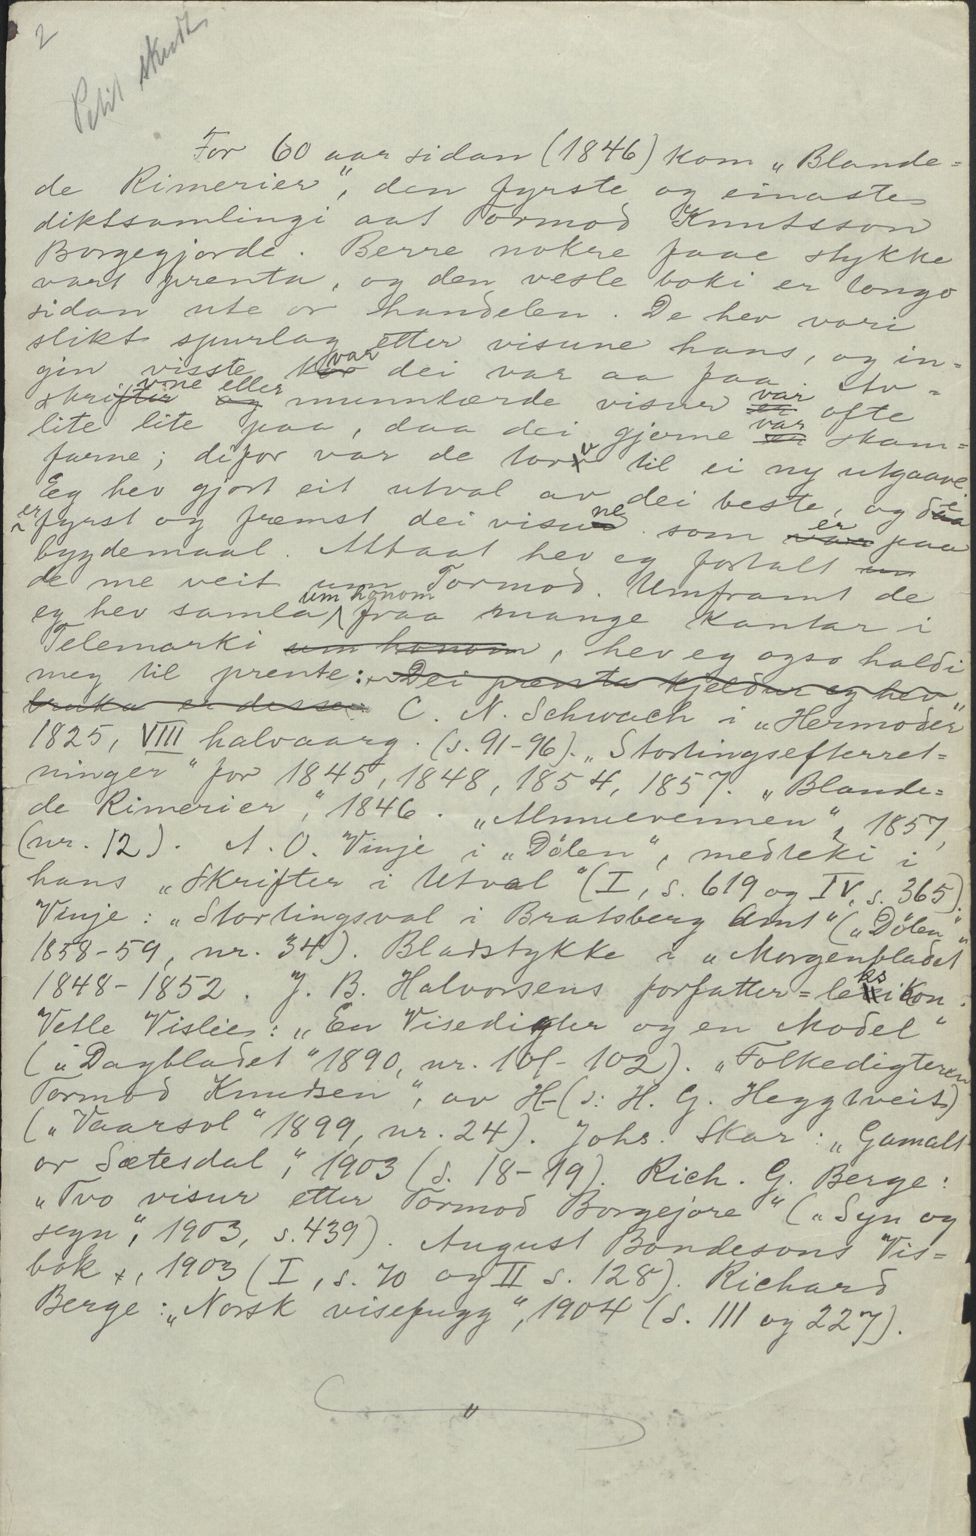 2
Petit skudt.
For 60 aar sidan (1846) kom „Blande=
de Rimerier“, den fyrste og einaste
diktsamlingi aat Tormod Knutsson
Borgegjorde. Berre nokre faae stykke
vart prenta, og den vesle boki er longo
sidan ute or handelen. De hev vori
slikt spurlag etter visune hans, og in=
gin visste kor var dei var aa faa. Av=
skriftir vne og eller munnlærde visur er var ofte
lite lite paa, daa dei gjerne er var skam=
farne; difor var de torv til ei ny utgaave.
Eg hev gjort eit utval av dei beste, og daa dei
er fyrst og fremst dei visune som var er paa
bygdemaal. Attaat hev eg fortalt um
de me veit um Tormod. Umframt de
eg hev samla um honom fraa mange kantar i
Telemarki um honom, hev eg ogso haldi
meg til prente: Dei prenta kjeldur eg hev
bruka er desse: C. N. Schwach i „Hermoder“
1825, VIII halvaarg. (s. 91-96). „Stortingsefterret=
ninger“ for 1845, 1848, 1854, 1857. „Blande=
de Rimerier“, 1846. „Almuevennen“, 1857,
(nr. 12). A. O. Vinje i „Dölen“, medteki i
hans „Skrifter i Utval“ (I, s. 619 og IV, s. 365).
Vinje: „Stortingsval i Bratsberg Amt“ („Dölen“
1858-59, nr. 34). Bladstykke i „Morgenbladet“
1848-1852. J. B. Halvorsens forfatter=leksikon.
Vetle Vislie: „En Visedigter og en Model“
(„Dagbladet“ 1890, nr. 101-102). „Folkedigteren
Tormod Knudsen“, av H- (s: H. G. Heggtveit)
(„Vaarsol“ 1899, nr. 24). Johs. Skar: „Gamalt
or Sætesdal“, 1903 (s. 18-19). Rich. G. Berge:
„Tvo visur etter Tormod Borgejore“ („Syn og
segn“, 1903, s. 439). August Bondesons Vis=
bok, 1903 (I, s. 70 og II s. 128). Richard
Berge: „Norsk visefugg“, 1904 (s. 111 og 227).